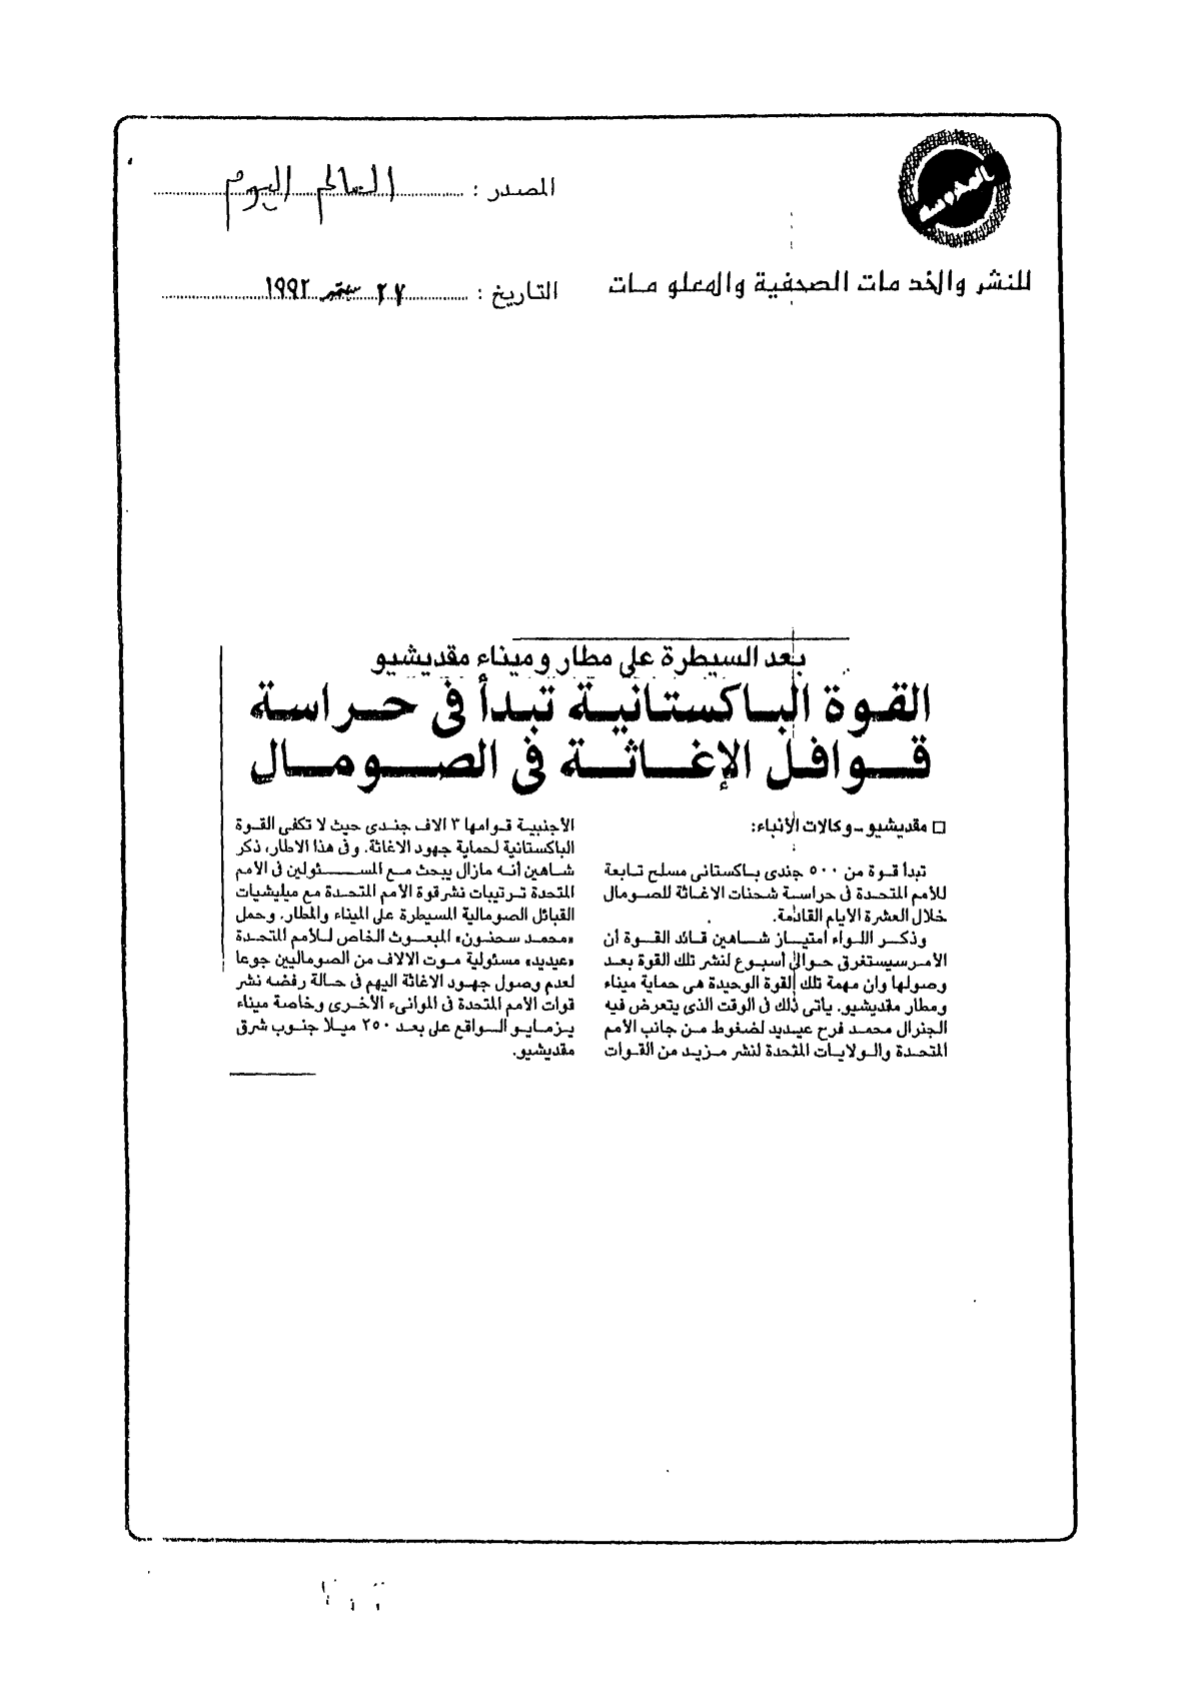 المحروسة
للنشر والخدمات الصحفية والمعلومات
المصدر : العالم اليوم
التاريخ : ٢٧ سبتمبر ١٩٩٢
بعد السيطرة على مطار وميناء مقديشيو
القوة الباكستانية تبدأ فى حراسة
قوافل الإغاثة فى الصومال
□ مقديشيو ـ وكالات الأنباء:
تبدأ قوة من ٥٠٠ جندى باكستانى مسلح تابعة
للأمم المتحدة فى حراسة شحنات الاغاثة للصومال
خلال العشرة الأيام القادمة.
وذكر اللواء امتياز شاهين قائد القوة أن
الأمر سيستغرق حوالى أسبوع لنشر تلك القوة بعد
وصولها وان مهمة تلك القوة الوحيدة هى حماية ميناء
ومطار مقديشيو. يأتى ذلك فى الوقت الذى يتعرض فيه
الجنرال محمد فرح عيديد لضغوط من جانب الأمم
المتحدة والولايات المتحدة لنشر مزيد من القوات
الأجنبية قوامها ٣ الاف جندى حيث لا تكفى القوة
الباكستانية لحماية جهود الاغاثة. وفى هذا الاطار، ذكر
شاهين أنه مازال يبحث مع المسئولين فى الأمم
المتحدة ترتيبات نشر قوة الأمم المتحدة مع ميليشيات
القبائل الصومالية المسيطرة على الميناء والمطار. وحمل
«محمد سحنون» المبعوث الخاص للأمم المتحدة
«عيديد» مسئولية موت الالاف من الصوماليين جوعا
لعدم وصول جهود الاغاثة اليهم فى حالة رفضه نشر
قوات الأمم المتحدة فى الموانىء الأخرى وخاصة ميناء
يزمايو الواقع على بعد ٢٥٠ ميلا جنوب شرق
مقديشيو.